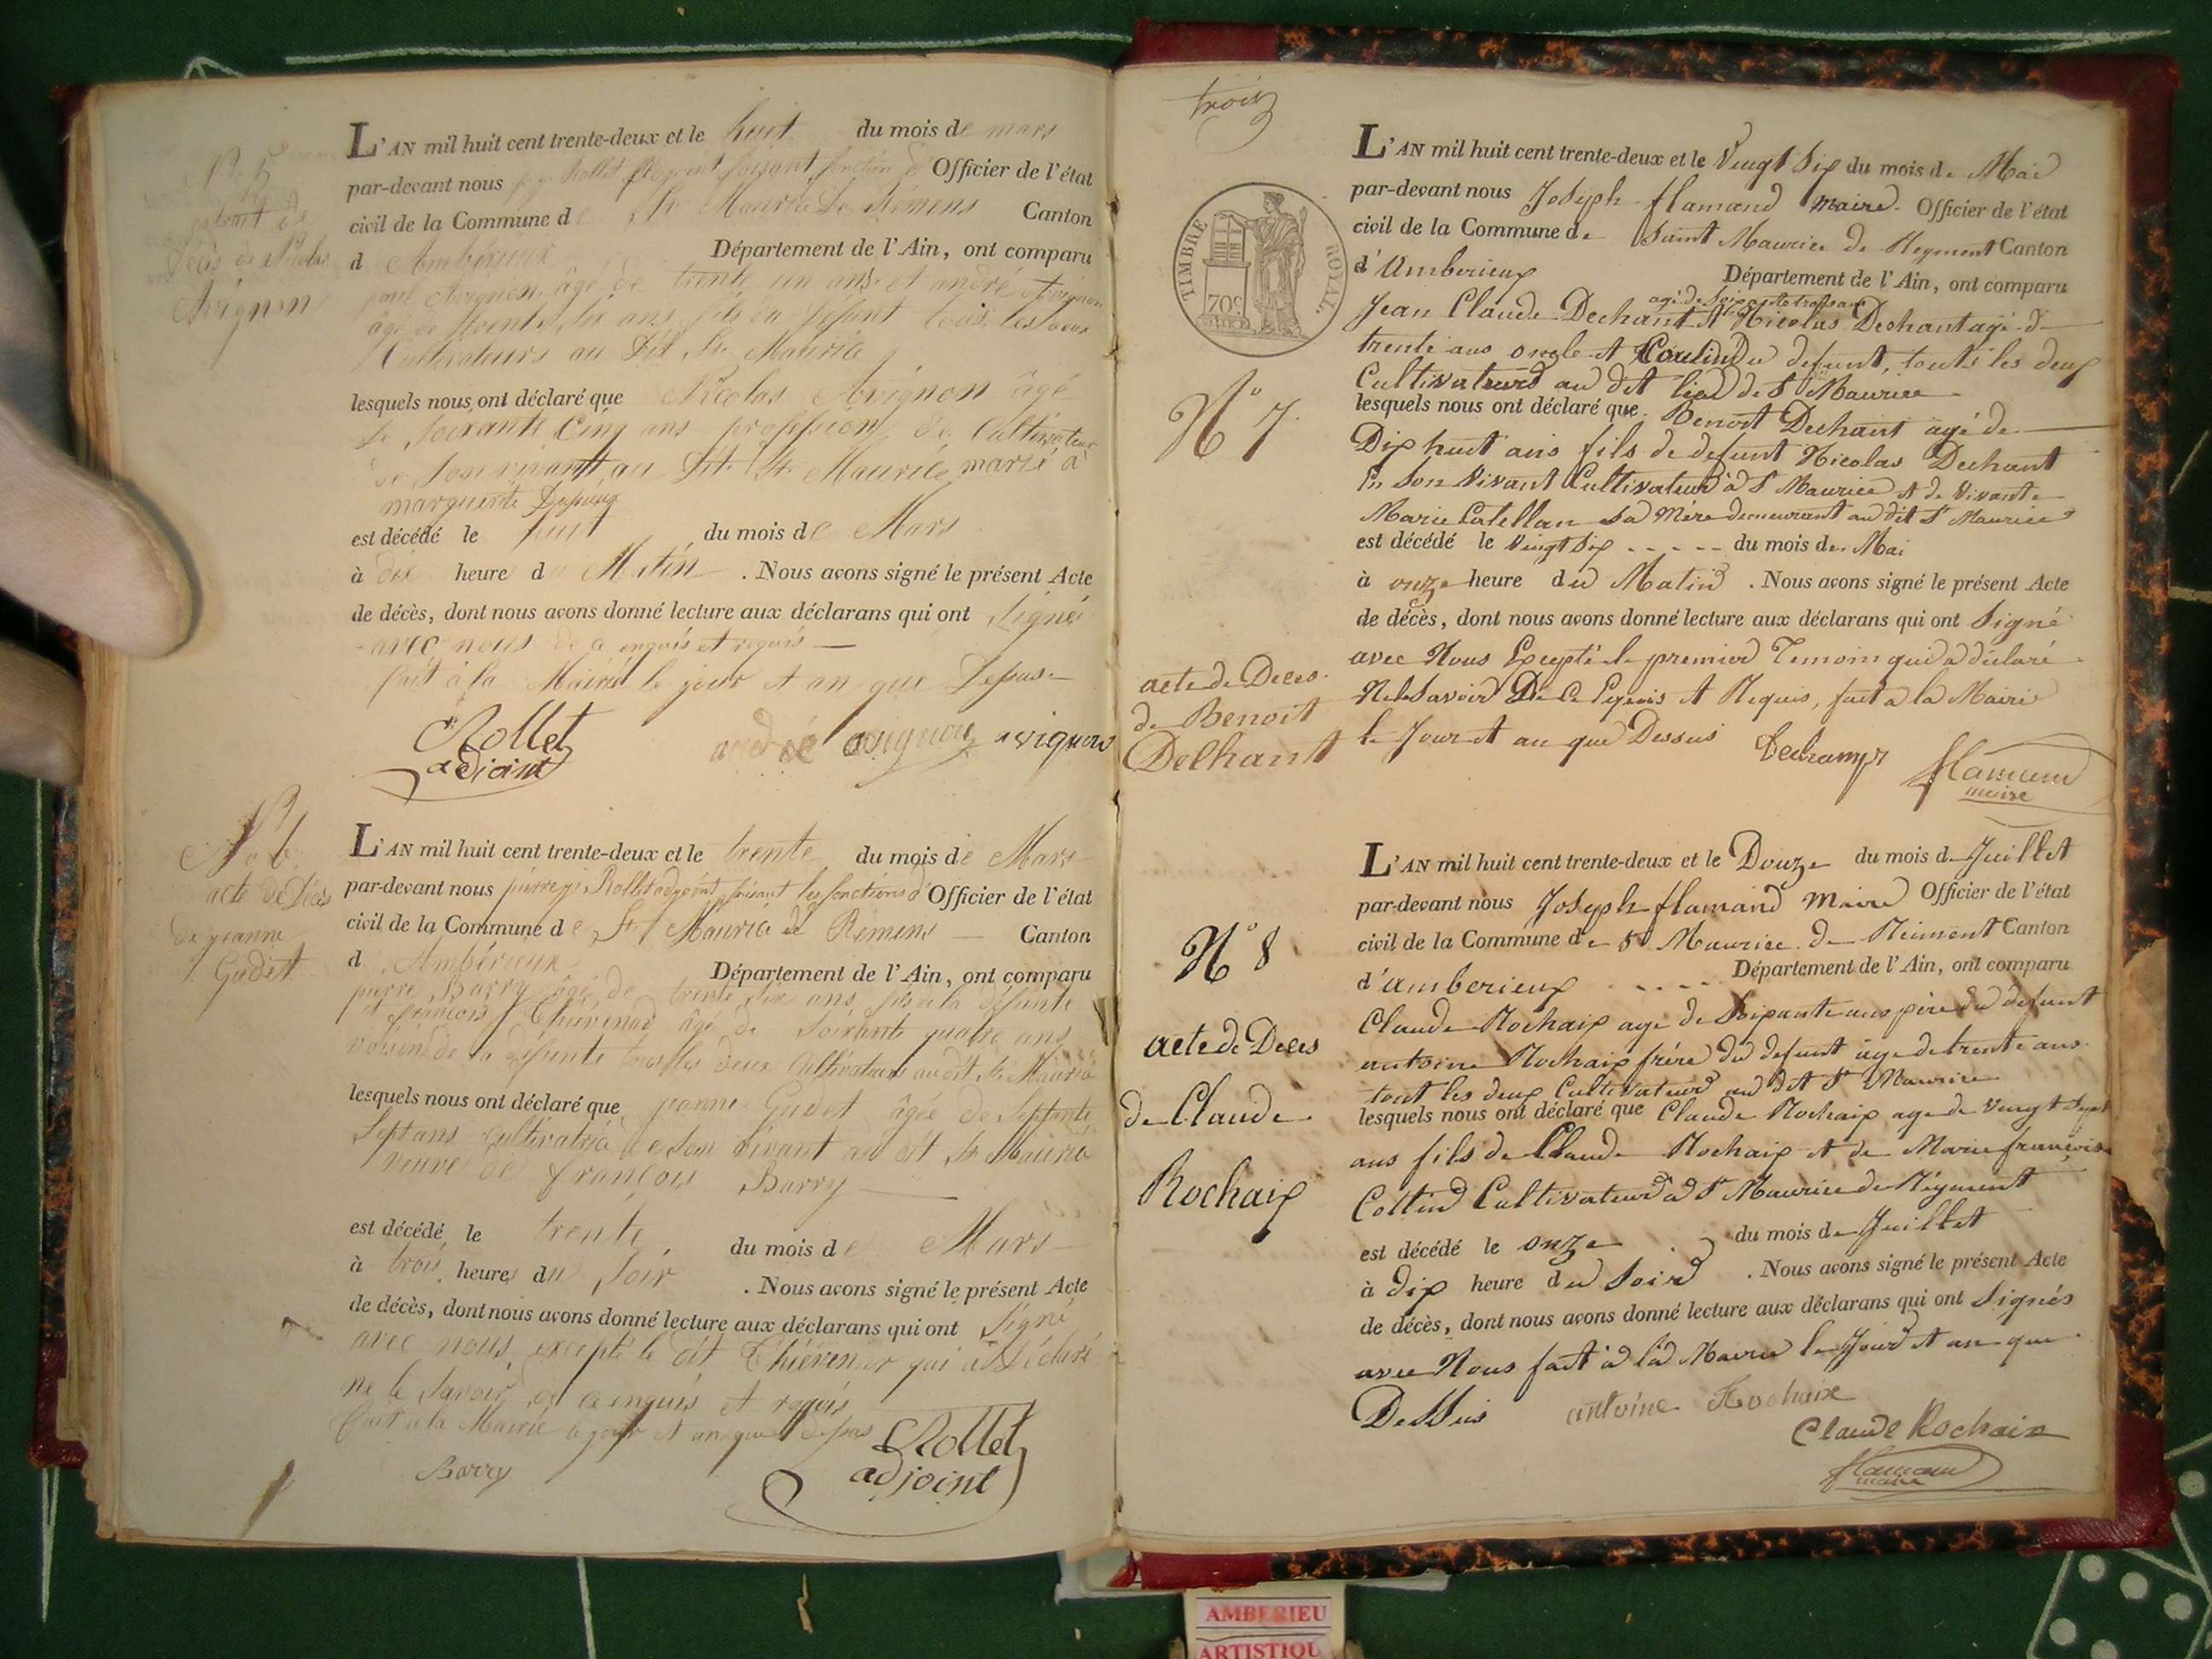 N° 5
extrait de
décès de Nicolas
Avignon
L'AN mil huit cent trente-deux et le huit du mois de mars
par-devant nous Rollet faisant fonction d' Officier de l'état
civil de la Commune de St Maurice de Rémens Canton
d Ambérieux Département de l'Ain, ont comparu
Avignon âgé de trente un ans et andré Avignon
âgé de trente six ans fils du défunt tous les deux
Cultivateurs au dit St Maurice
lesquels nous ont déclaré que Nicolas Avignon âgé
de soixante Cinq ans profession de Cultivateur
de son vivant au dit St Maurice marié à
marguerite
est décédé le huit du mois de Mars
à dix heure du Matin . Nous avons signé le présent Acte
de décès, dont nous avons donné lecture aux déclarans qui ont signés
avec nous de ce enquis et requis
fait à la Mairie le jour et an que Dessus
Rollet
adjoint
andré avignon avignon
N° 6
acte de Décès
de jeanne
Gudet
L'AN mil huit cent trente-deux et le trente du mois de Mars
par-devant nous pierre Rollet adjoint faisant les fonctions d' Officier de l'état
civil de la Commune de St Maurice de Rémens Canton
d Ambérieux Département de l'Ain, ont comparu
pierre Barry âgé de trente six ans fils de la défunte
et françois Thévenar âgé de soixante quatre ans
voisin de la défunte tous les deux Cultivateurs au dit St Maurice
lesquels nous ont déclaré que jeanne Gudet âgée de septante
sept ans cultivatrice de son vivant au dit St Maurice
veuve de françois Barry
est décédé le trente du mois de Mars
à trois heures du soir . Nous avons signé le présent Acte
de décès, dont nous avons donné lecture aux déclarans qui ont signé
avec nous excepté le dit Thévenar qui a déclaré
ne le savoir de ce enquis et requis
fait a la Mairie le jour et an que dessus
Barry
Rollet
adjoint
trois
TIMBRE ROYAL.
70c.
N° 7.
acte de Deces
de Benoit
Dechant
L'AN mil huit cent trente-deux et le Vingt Six du mois de Mai
par-devant nous Joseph flamand Maire Officier de l'état
civil de la Commune de Saint Maurice de Regment Canton
d'Amberieux Département de l'Ain, ont comparu
agé de Soixante trois ans
Jean Claude Dechant et Nicolas Dechant agé de
trente ans oncle et Coulin du defunt, touts les deux
Cultivateurs au dit lieu de St Maurice
lesquels nous ont déclaré que Benoit Dechant agé de
Dix huit ans fils de defunt Nicolas Dechant
En Son Vivant Cultivateur à St Maurice et de Vivante
Marie Catellan Sa Mère demeurant au dit St Maurice
est décédé le Vingt Six du mois de Mai
à onze heure du Matin . Nous avons signé le présent Acte
de décès, dont nous avons donné lecture aux déclarans qui ont Signé
avec Nous Excepté le premier Temoin qui a déclaré
Ne le Savoir De Ce Requis, fait a la Mairie
le Jour et an que Dessus
Dechamp
flamand
maire
N° 8
acte de Deces
de Claude
Rochaix
L'AN mil huit cent trente-deux et le Douze du mois de Juillet
par-devant nous Joseph flamand Maire Officier de l'état
civil de la Commune de St Maurice de Reiment Canton
d'amberieux Département de l'Ain, ont comparu
Claude Rochaix age de Soixante ans père du defunt
antoine Rochaix frére du defunt âge de trente ans
tout les deux Cultivateur au dit St Maurice
lesquels nous ont déclaré que Claude Rochaix age de vingt Sept
ans fils de Claude Rochaix et de Marie françoise
Cottin Cultivateur a St Maurice de Régment
est décédé le onze du mois de Juillet
à dix heure du Soir . Nous avons signé le présent Acte
de décès, dont nous avons donné lecture aux déclarans qui ont Signés
avec Nous fait à la Mairie le Jour et an que
Dessus
antoine Rochaix
Claude Rochaix
flamand
maire
AMBERIEU
ARTISTIQU